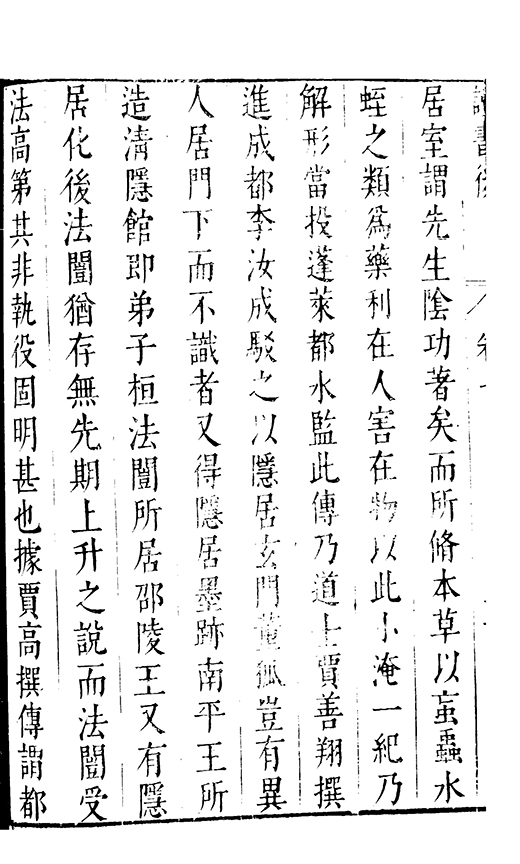 讀書後
卷七
居室謂先生陰功著矣而所脩本草以䖟蟲水
蛭之類爲藥利在人害在物以此小淹一紀乃
解形當投蓬萊都水監此傳乃道士賈善翔撰
進成都李汝成駁之以隱居玄門董狐豈有異
人居門下而不識者又得隱居墨跡南平王所
造淸隱館即弟子桓法闓所居邵陵王又有隱
居化後法闓猶存無先期上升之說而法闓受
法高第其非執役固明甚也據賈高撰傳謂都